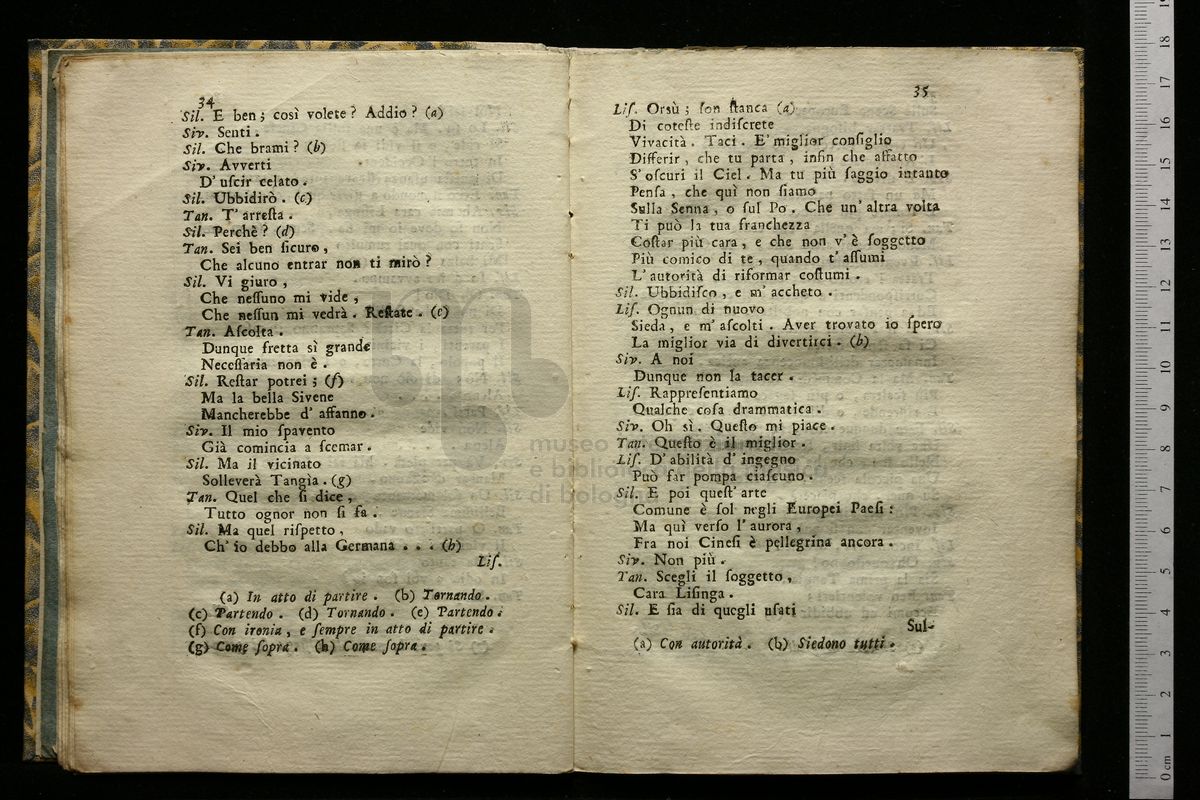 34
Sil. E ben; così volete? Addio? (a)
Siv. Senti.
Sil. Che brami? (b)
Siv. Avverti
D' uſcir celato.
Sil. Ubbidirò. (c)
Tan. T' arreſta.
Sil. Perchè? (d)
Tan. Sei ben ſicuro,
Che alcuno entrar non ti mirò?
Sil. Vi giuro,
Che neſſuno mi vide,
Che neſſun mi vedrà. Reſtate. (e)
Tan. Aſcolta.
Dunque fretta sì grande
Neceſſaria non è.
Sil. Reſtar potrei; (f)
Ma la bella Sivene
Mancherebbe d' affanno.
Siv. Il mio ſpavento
Già comincia a ſcemar.
Sil. Ma il vicinato
Solleverà Tangia. (g)
Tan. Quel che ſi dice,
Tutto ognor non ſi fa.
Sil. Ma quel riſpetto,
Ch' io debbo alla Germana . . . (h)
Liſ.
(a) In atto di partire. (b) Tornando.
(c) Partendo. (d) Tornando. (e) Partendo.
(f) Con ironia, e ſempre in atto di partire.
(g) Come ſopra. (h) Come ſopra.
35
Liſ. Orsù; ſon ſtanca (a)
Di coteſte indiſcrete
Vivacità. Taci. E' miglior conſiglio
Differir, che tu parta, infin che affatto
S' oſcuri il Ciel. Ma tu più ſaggio intanto
Penſa, che quì non ſiamo
Sulla Senna, o ſul Po. Che un' altra volta
Ti può la tua franchezza
Coſtar più cara, e che non v' è ſoggetto
Più comico di te, quando t' aſſumi
L' autorità di riformar coſtumi.
Sil. Ubbidiſco, e m' accheto.
Liſ. Ognun di nuovo
Sieda, e m' aſcolti. Aver trovato io ſpero
La miglior via di divertirci. (b)
Siv. A noi
Dunque non la tacer.
Liſ. Rappreſentiamo
Qualche coſa drammatica.
Siv. Oh sì. Queſto mi piace.
Tan. Queſto è il miglior.
Liſ. D' abilità d' ingegno
Può far pompa ciaſcuno.
Sil. E poi queſt' arte
Comune è ſol negli Europei Paeſi:
Ma quì verſo l' aurora,
Fra noi Cineſi è pellegrina ancora.
Siv. Non più.
Tan. Scegli il ſoggetto,
Cara Liſinga.
Sil. E ſia di quegli uſati
Sul-
(a) Con autorità. (b) Siedono tutti.
museo
e biblioteca
di bologna
0 cm 1 2 3 4 5 6 7 8 9 10 11 12 13 14 15 16 17 18